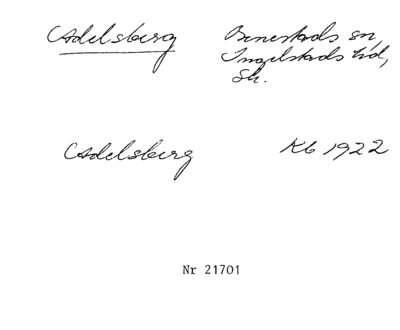 Adelsberg
Benestads sn,
Ingelstads hd,
Sk.
Adelsberg Kb 1922
Nr 21701